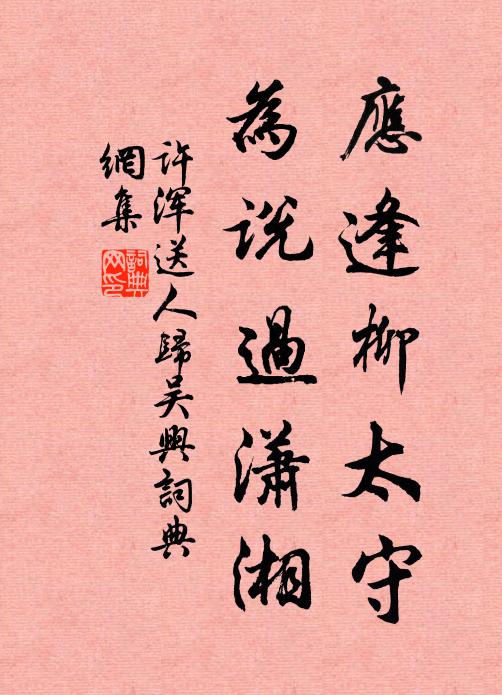 應逢柳太守
為説過瀟湘
許渾送人歸吴興詞典
網集
詞典网印